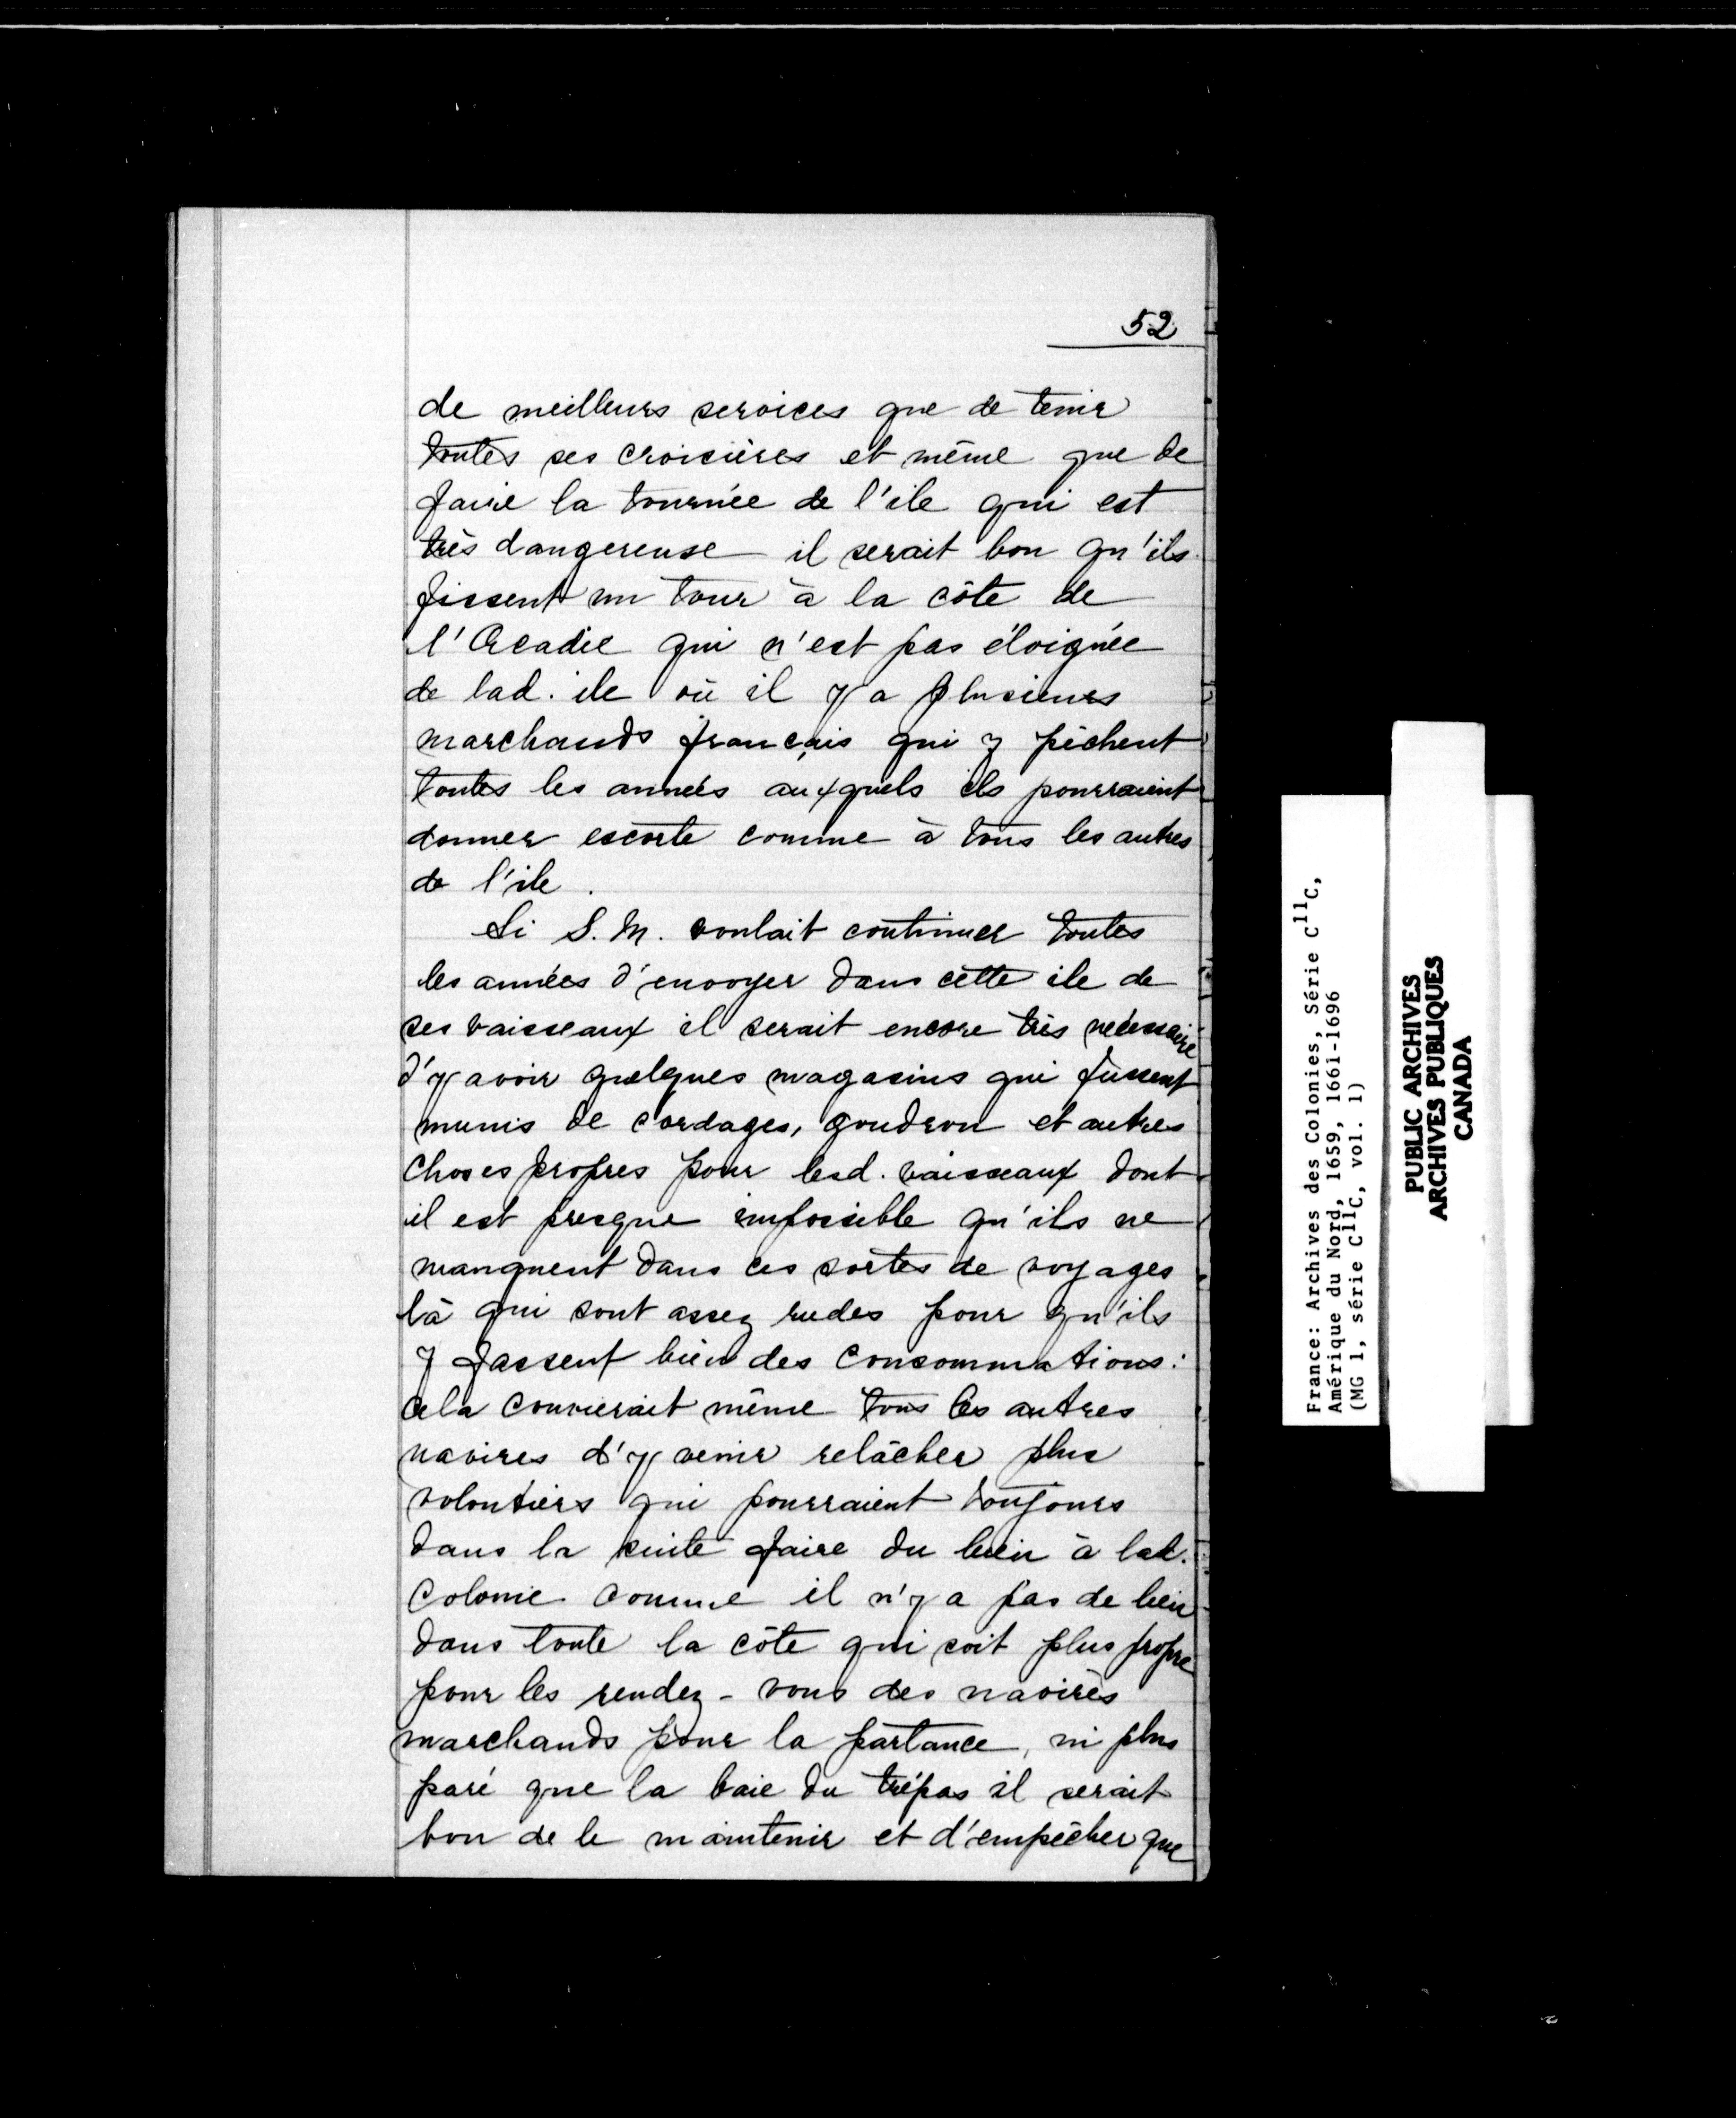 52
de meilleurs services que de tenir
toutes ses croisières et même que de
faire la tournée de l'ile qui est
très dangereuse il serait bon qu'ils
fissent un tour à la côte de
l'Acadie qui n'est pas éloignée
de lad. ile où il y a plusieurs
marchands français qui y pêchent
toutes les années auxquels ils pourraient
donner escorte comme à tous les autres
de l'ile.
Si S. M. voulait continuer toutes
les années d'envoyer dans cette ile de
ses vaisseaux il serait encore très nécessaire
d'y avoir quelques magasins qui fussent
munis de cordages, goudron et autres
choses propres pour lesd. vaisseaux dont
il est presque impossible qu'ils ne
manquent dans ces sortes de voyages
là qui sont assez rudes pour qu'ils
y fassent bien des consommations:
cela convierait même tous les autres
navires d'y venir relâcher plus
volontiers qui pourraient toujours
dans la suite faire du bien à lad.
colonie comme il n'y a pas de lieu
dans toute la côte qui soit plus propre
pour les rendez-vous des navires
marchands pour la partance, ni plus
paré que la baie du trépas il serait
bon de le maintenir et d'empêcher que
France: Archives des Colonies, Série C11C,
Amérique du Nord, 1659, 1661-1696
(MG 1, série C11C, vol. 1)
PUBLIC ARCHIVES
ARCHIVES PUBLIQUES
CANADA